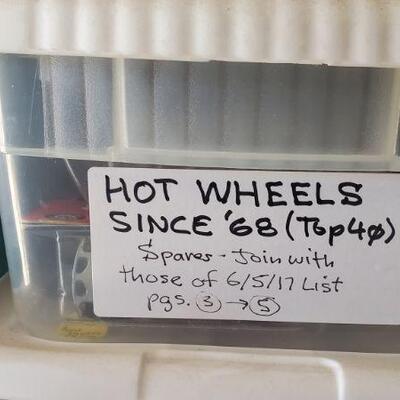 HOT WHEELS
SINCE '68 (Top 40)
Spares - Join with
those of 6/5/17 List
pgs. 3 → 5